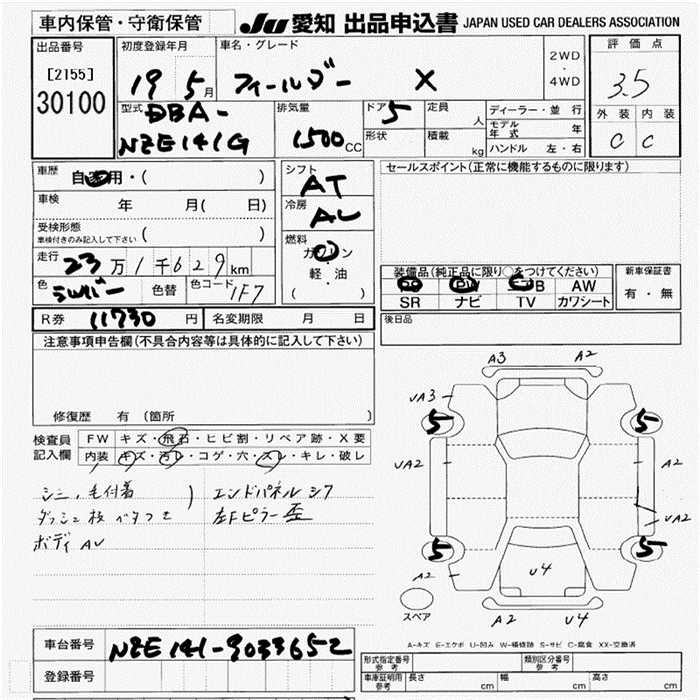 車内保管・守衛保管 JU 愛知 出品申込書 JAPAN USED CAR DEALERS ASSOCIATION
出品番号
[2155]
30100
初度登録年月
19 5月
車名・グレード
フィールダー X
2WD
・
4WD
評価点
3.5
外装 内装
C C
型式 DBA-
NZE141G
排気量
1500CC
ドア 5
形状
定員 人
積載 kg
ディーラー・並行
モデル年式 年
ハンドル 左・右
車歴 自家用・( )
車検 年 月( 日)
受検形態
車検付きのみ記入して下さい ( )
走行 23万1千629km
色 シルバー 色替 色コード 1F7
シフト AT
冷房 AC
燃料
ガソリン
軽・油
( )
セールスポイント(正常に機能するものに限ります)
装備品(純正品に限り○をつけてください)
PS PW AB AW
SR ナビ TV カワシート
新車保証書
有・無
R券 11730円 名変期限 月 日
後日品
注意事項申告欄(不具合内容等は具体的に記入して下さい)
修復歴 有 (箇所 )
検査員
記入欄
FW キズ・飛石・ヒビ割・リペア跡・X要
内装 キズ・汚レ・コゲ・穴・スレ・キレ・破レ
シミ、毛付着
エンドパネル シワ
左Fピラー 歪
A3 A2
UA3
5 5
UA2 A2
UA2
5 5
A2 U4
スペア
A2 U4
A-キズ E-エクボ U-凹み W-補修跡 S-サビ C-腐食 XX-交換済
車台番号 NZE141-9033652
登録番号
形式指定番号
参考
類別区分番号
参考
車庫証明用
参考
長さ cm 幅 cm 高さ cm